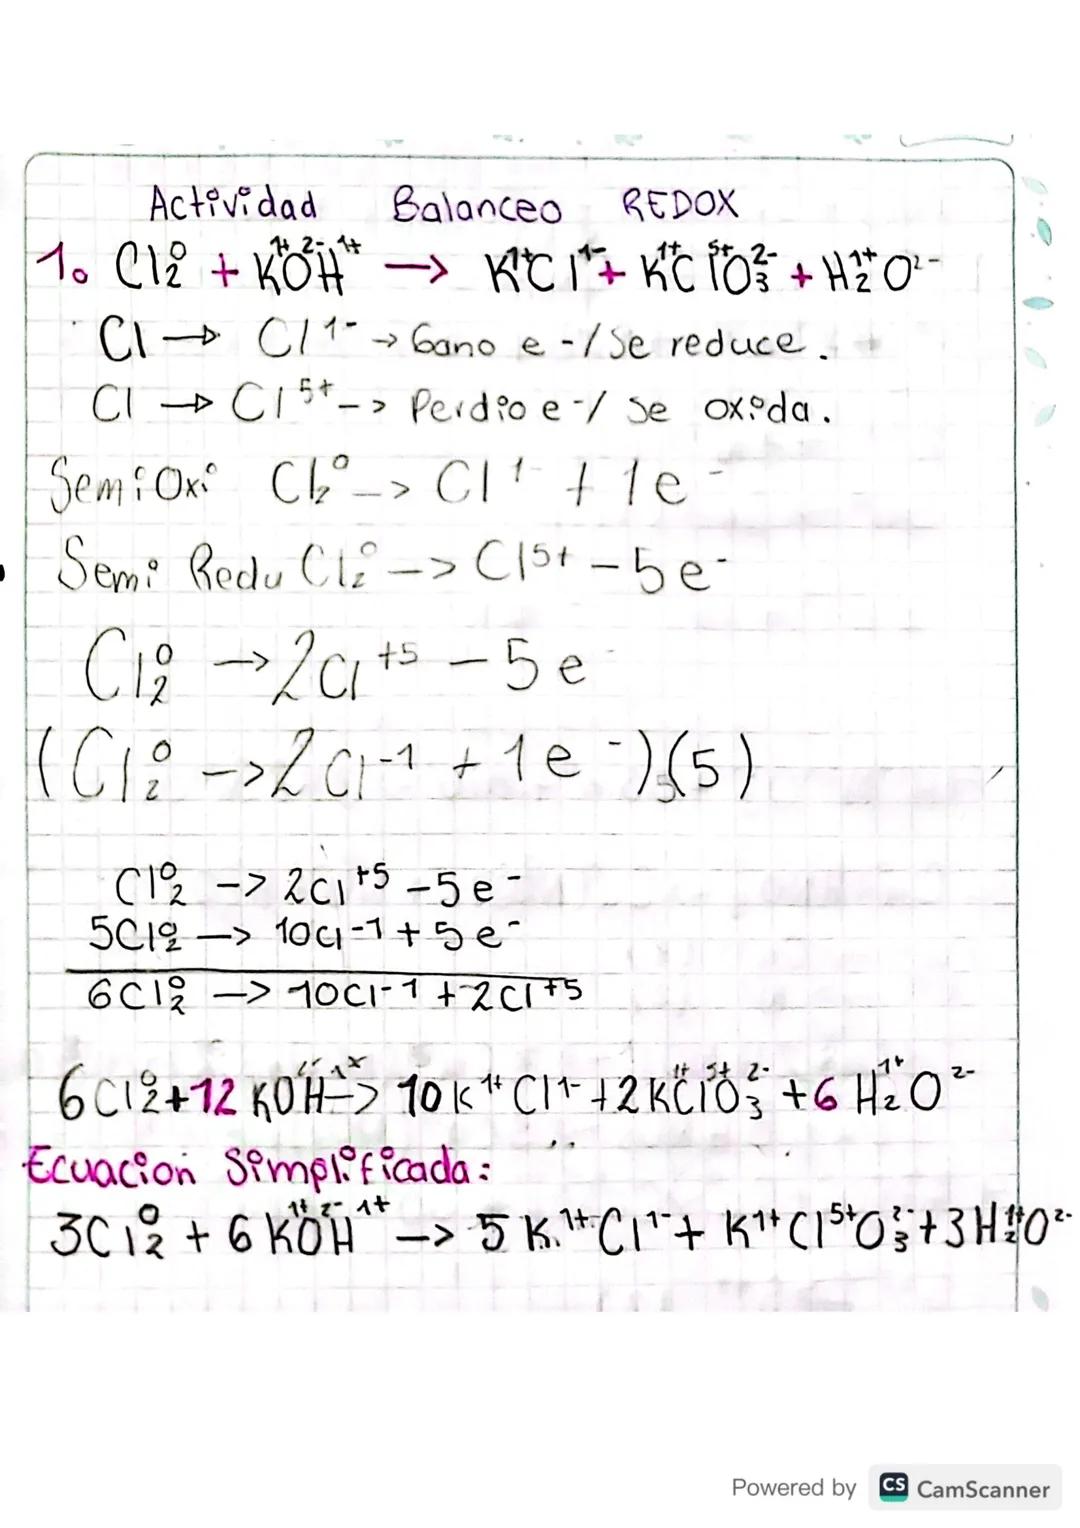 Actividad Balanceo REDOX
1. Cl₂⁰ + K¹⁺O²⁻H¹⁺ → K¹⁺Cl¹⁻ + K¹⁺Cl⁵⁺O₃²⁻ + H₂¹⁺O²⁻
Cl → Cl¹⁻ → Gano e-/Se reduce.
Cl → Cl⁵⁺ -> Perdio e-/ Se oxida.
Semi Oxi Cl₂⁰ -> Cl¹⁻ + 1e⁻
Semi Redu Cl₂⁰ -> Cl⁵⁺ - 5e⁻
Cl₂⁰ → 2Cl⁺⁵ - 5e⁻
(Cl₂⁰ -> 2Cl⁻¹ + 1e⁻)₅(5)
Cl₂⁰ -> 2Cl⁺⁵ - 5e⁻
5Cl₂⁰ -> 10Cl⁻¹ + 5e⁻
6Cl₂⁰ -> 10Cl⁻¹ + 2Cl⁺⁵
6Cl₂⁰ + 12 KOH -> 10K¹⁺Cl¹⁻ + 2K¹⁺Cl⁵⁺O₃²⁻ + 6 H₂¹⁺O²⁻
Ecuacion Simplificada:
3Cl₂⁰ + 6 K¹⁺O²⁻H¹⁺ -> 5 K¹⁺Cl¹⁻ + K¹⁺Cl⁵⁺O₃²⁻ + 3H₂¹⁺O²⁻
Powered by CS CamScanner